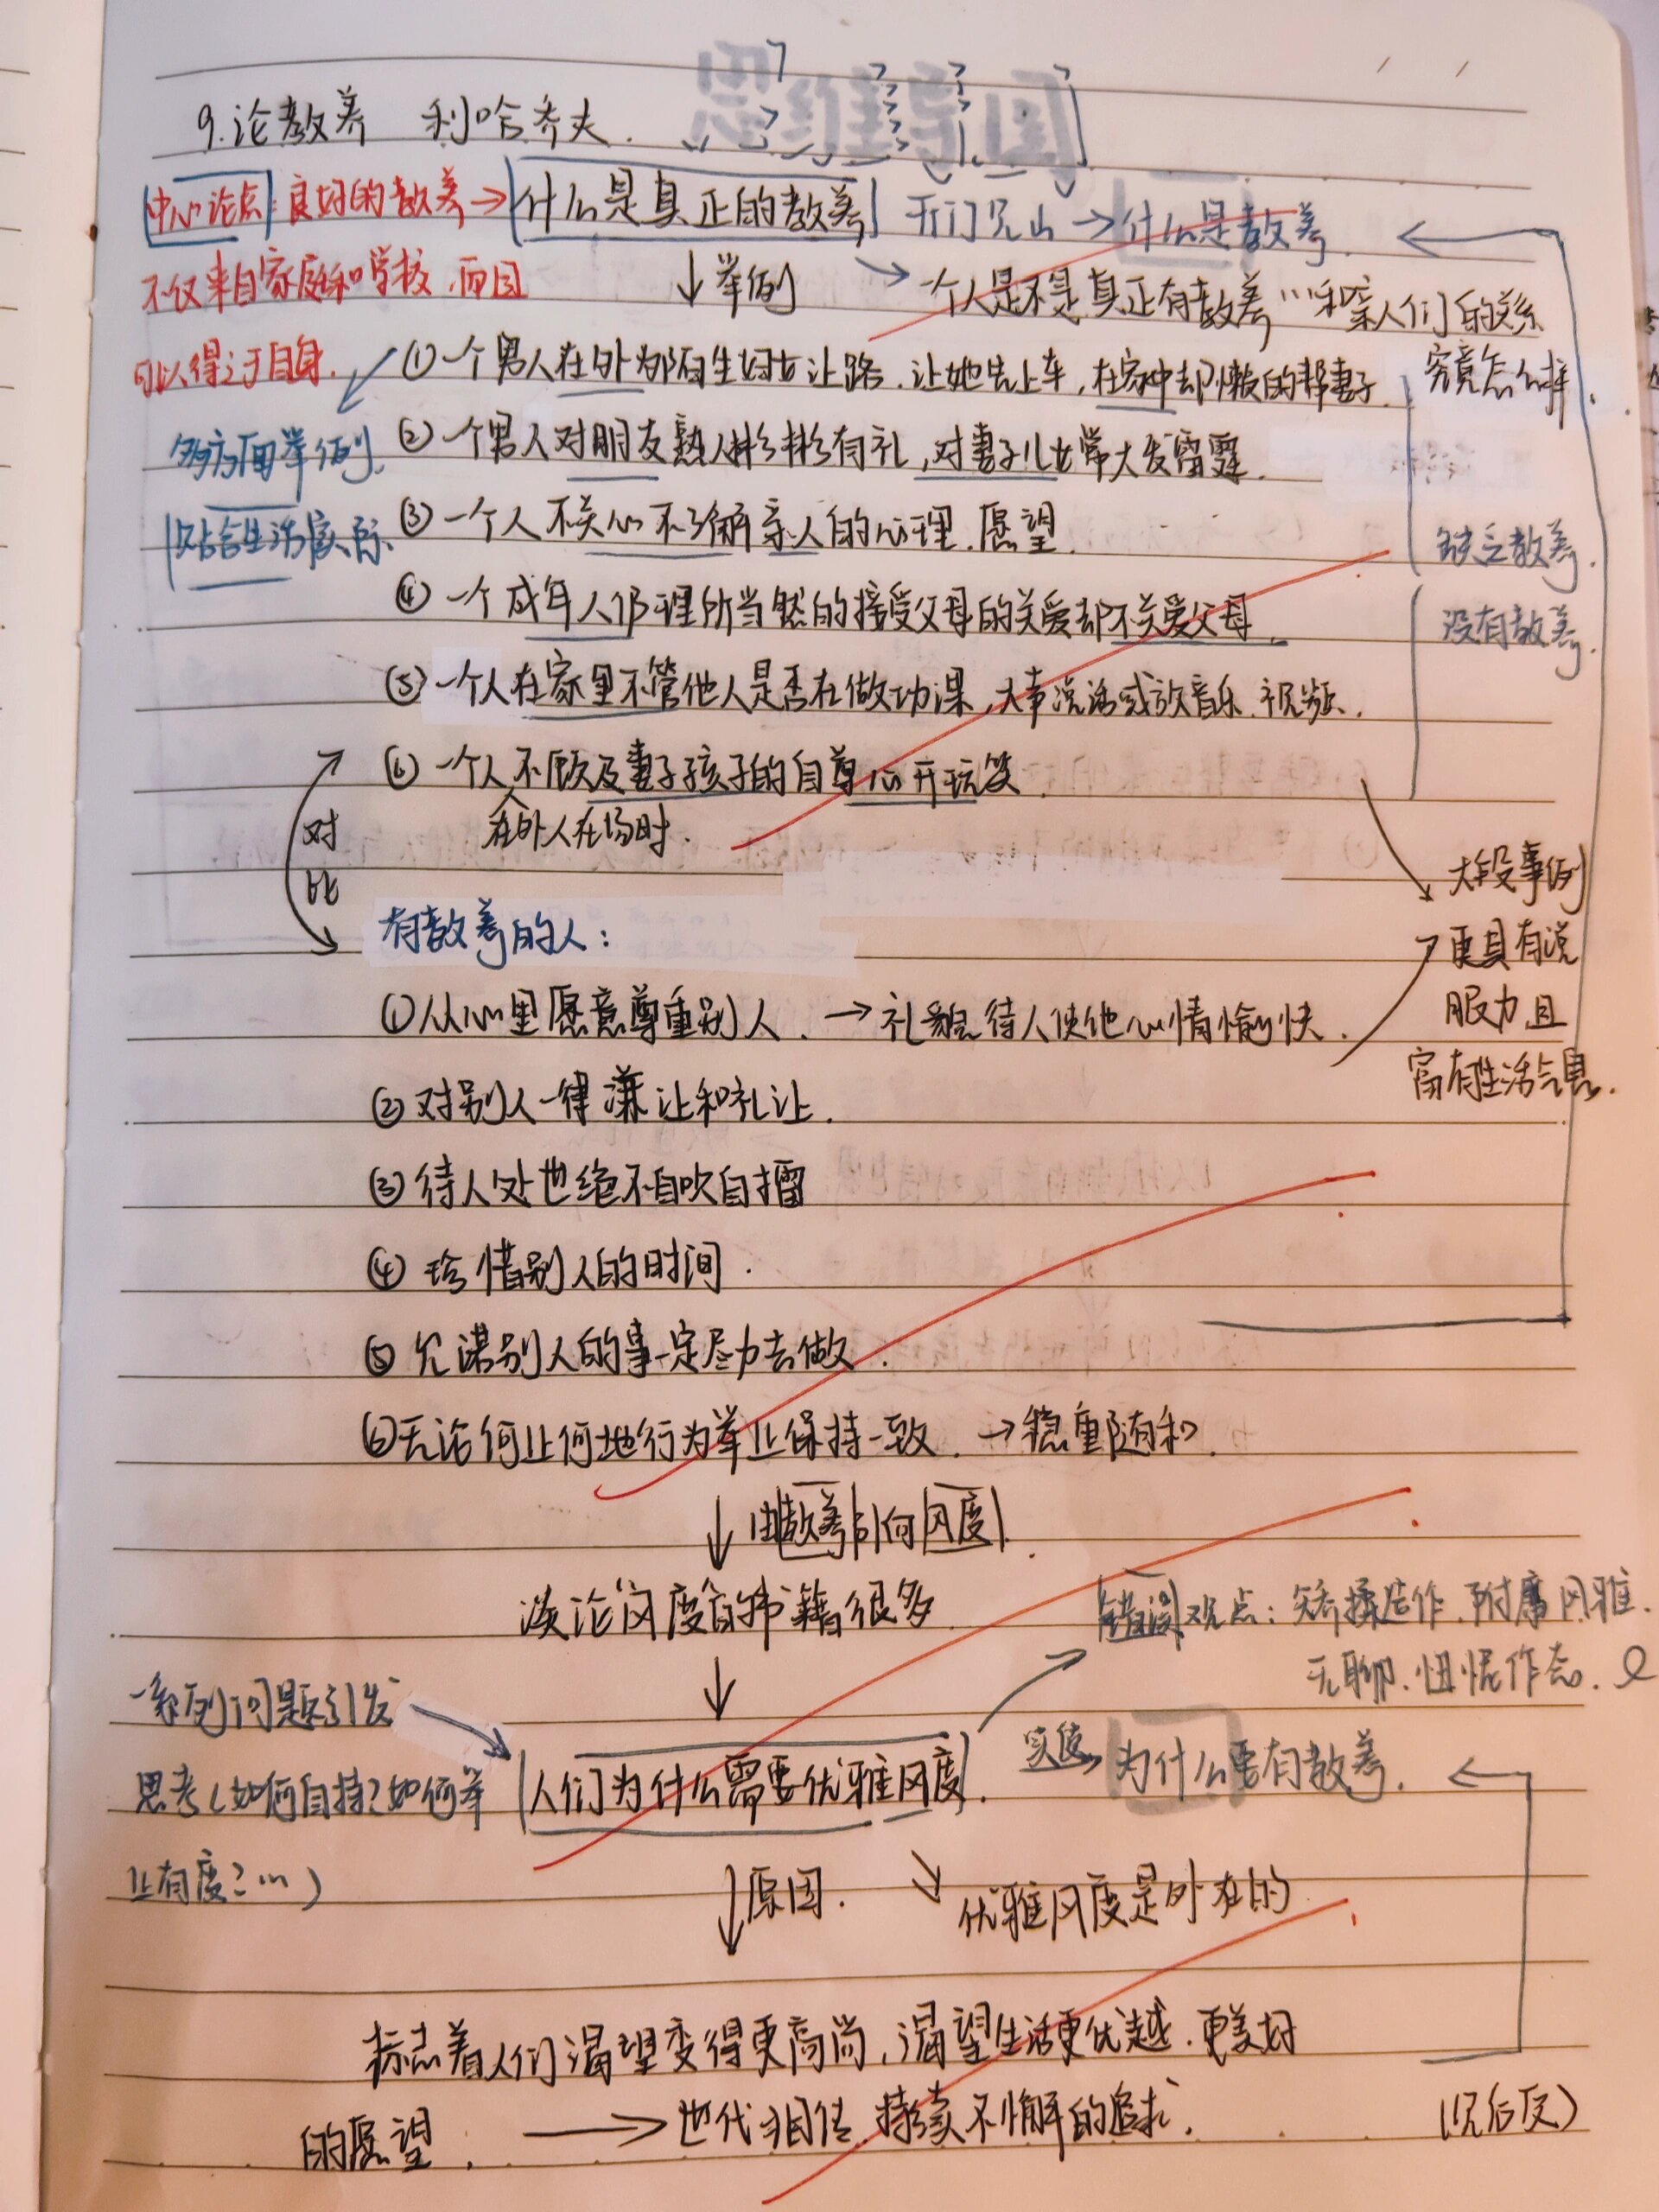 9.论教养 利哈乔夫.
中心论点: 良好的教养→ 什么是真正的教养 开门见山→什么是教养.
不仅来自家庭和学校,而且 ↓举例 → 一个人是不是真正有教养…和亲人们的关系
可以得之于自身. ①一个男人在外为陌生妇女让路.让她先上车,在家中却懒的帮妻子. 究竟怎么样.
多方面举例. ②一个男人对朋友熟人彬彬有礼,对妻子儿女常大发雷霆.
贴合生活实际. ③一个人不关心不了解亲人的心理.愿望. 缺乏教养.
④一个成年人仍理所当然的接受父母的关爱却不关爱父母. 没有教养.
⑤一个人在家里不管他人是否在做功课,大声说话或放音乐.视频.
⑥一个人不顾及妻子孩子的自尊心开玩笑.
在外人在场时.
对比
大段事例
更具有说
服力,且
富有生活气息.
有教养的人:
①从心里愿意尊重别人.→礼貌待人使他心情愉快.
②对别人一律谦让和礼让.
③待人处世绝不自吹自擂
④珍惜别人的时间.
⑤允诺别人的事一定尽力去做.
⑥无论何止何地行为举止保持一致.→稳重随和.
↓由教养引向风度.
谈论"风度"的书籍很多. 错误观点:矫揉造作.附庸风雅.
↓ 无聊.忸怩作态.
一系列问题引发 实质→为什么要有教养.
思考(如何自持?如何举 人们为什么需要优雅风度.
止有度?…) ↓原因. ↘优雅风度是外在的
标志着人们渴望变得更高尚,渴望生活更优越.更美好
的愿望. →世代相传.持续不懈的追求. (见后页)